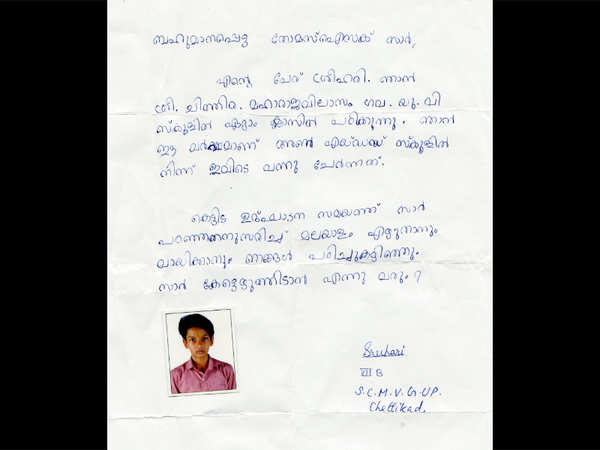 ബഹുമാനപ്പെട്ട തോമസ്ഐസക് സാർ,
എന്റെ പേര് ശ്രീഹരി. ഞാൻ
ശ്രീ. ചിത്തിര. മഹാരാജവിലാസം ഗവ. യു. പി
സ്കൂളിൽ ഏഴാം ക്ലാസിൽ പഠിക്കുന്നു. ഞാൻ
ഈ വർഷമാണ് അൺ എയ്ഡഡ് സ്കൂളിൽ
നിന്ന് ഇവിടെ വന്നു ചേർന്നത്.
കെട്ടിട ഉദ്ഘാടന സമയത്ത് സാർ
പറഞ്ഞതനുസരിച്ച് മലയാളം എഴുതാനും
വായിക്കാനും ഞങ്ങൾ പഠിച്ചുകഴിഞ്ഞു.
സാർ കേട്ടെഴുത്തിടാൻ എന്നു വരും ?
Sreehari
VII B
S.C.M.V.G.UP.
Chettikad,